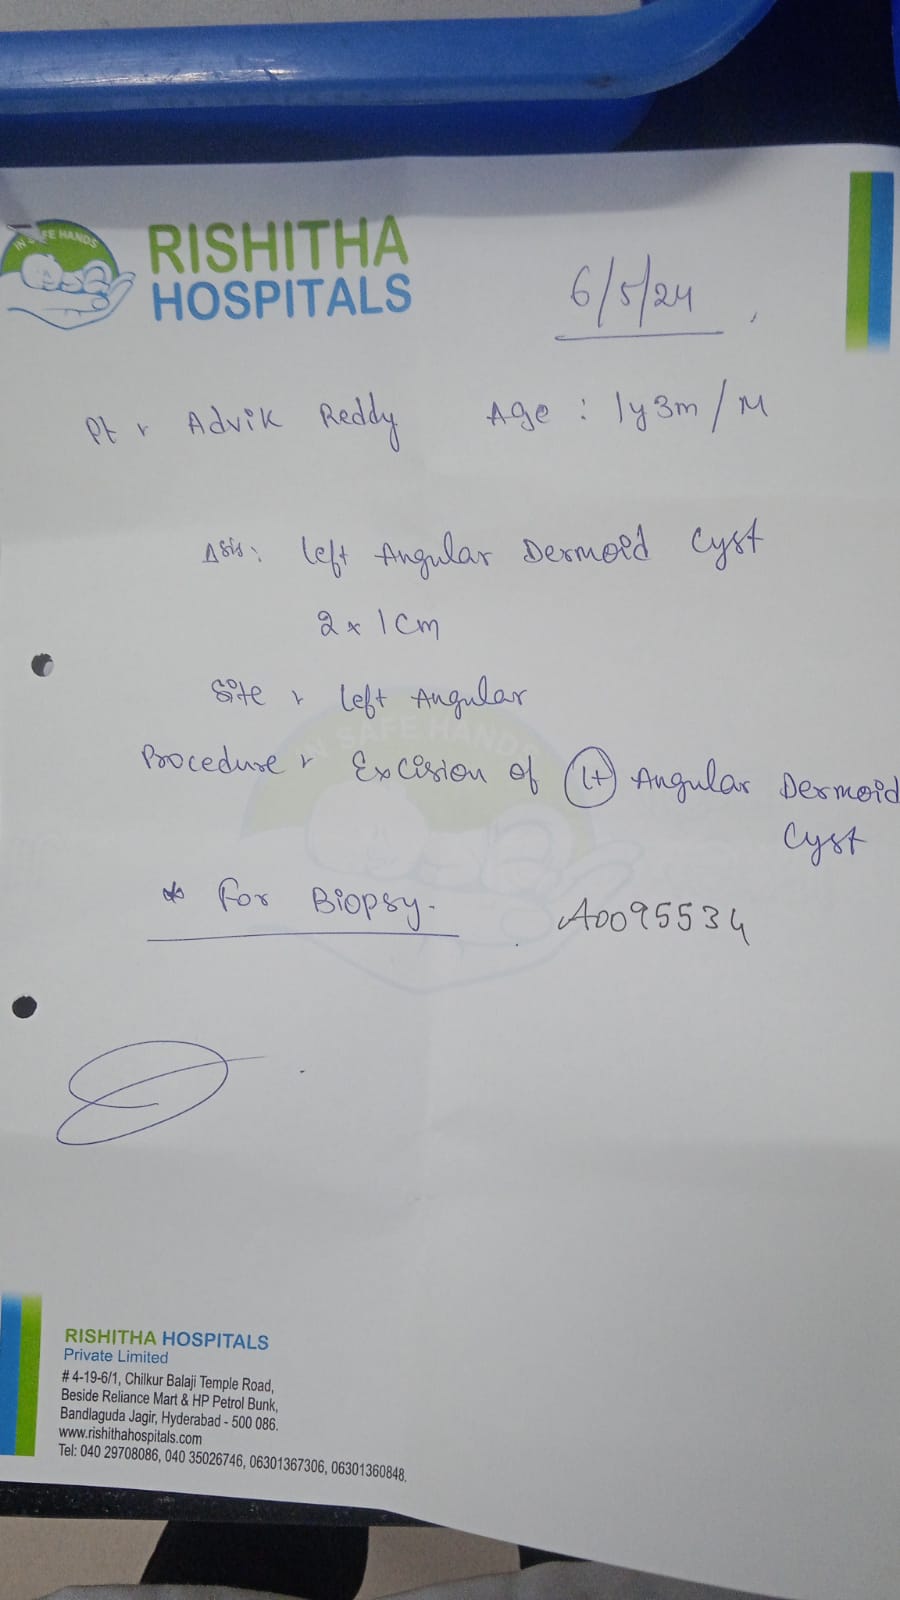 IN SAFE HANDS
RISHITHA
HOSPITALS
6/5/24
Pt : Advik Reddy Age : 1y3m/M
Δsis: Left Angular Dermoid Cyst
2 x 1 cm
Site : Left Angular
IN SAFE HANDS
Procedure : Excision of Lt Angular Dermoid
Cyst
* For Biopsy. A0095534
RISHITHA HOSPITALS
Private Limited
# 4-19-6/1, Chilkur Balaji Temple Road,
Beside Reliance Mart & HP Petrol Bunk,
Bandlaguda Jagir, Hyderabad - 500 086.
www.rishithahospitals.com
Tel: 040 29708086, 040 35026746, 06301367306, 06301360848.